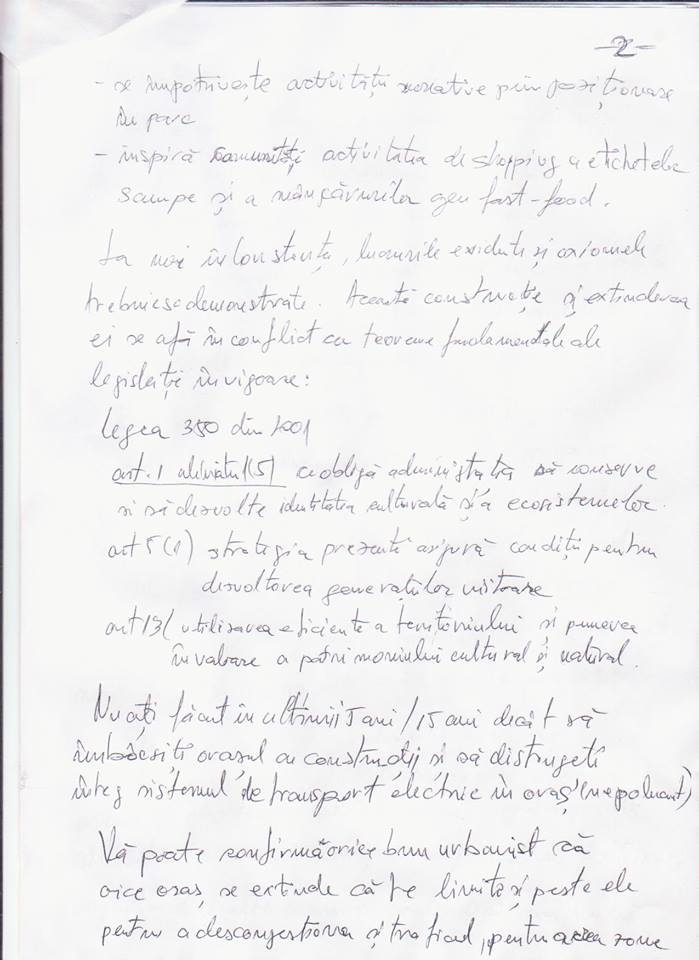 -2-
- se împotrivește activității recreative prin poziționare
în parc
- inspiră comunității activitatea de shopping a etichetelor
scumpe și a mâncărurilor gen fast-food.
La noi în Constanța, lucrurile evidente și axiomele
trebuiesc demonstrate. Această construcție și extinderea
ei se află în conflict cu teoreme fundamentale ale
legislației în vigoare:
Legea 350 din 2001
art. 1 aliniatul (5) ce obligă administrația să conserve
si să dezvolte identitatea culturală și a ecosistemelor.
art 5 (1) strategia prezentă asigură condiții pentru
dezvoltarea generațiilor viitoare
art 13( utilizarea eficientă a teritoriului si punerea
în valoare a patrimoniului cultural și natural.
Nu ați făcut în ultimii 5 ani / 15 ani decât să
îmbâcsiți orasul cu construcții si să distrugeti
înteg sistemul de transport electric în oraș (nepoluant)
Vă poate confirma orice bun urbanist că
oice oraș se extinde către limite și peste ele
pentru a descongestiona și traficul, pentru acea zone